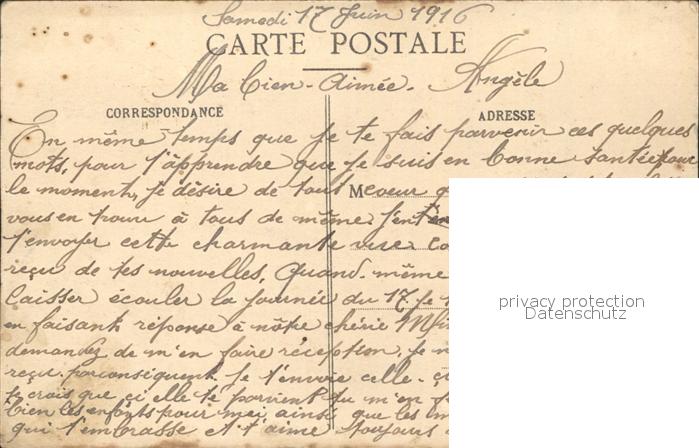 Samedi 17 Juin 1916
CARTE POSTALE
Ma bien-aimée. Angèle
CORRESPONDANCE
ADRESSE
En même temps que je te fais parvenir ces quelques
mots, pour t'apprendre que je suis en bonne santée pour
le moment, je désire de tout M coeur
vous en trouve à tous de même. J'ent'en
t'envoyer cette charmante vue. Co
reçu de tes nouvelles, Quand-même
laisser écouler la journée du 17. Je
en faisant réponse à nôtre chérie Mi
demandez de m'en faire réception. Je n
reçu. par conséquent. Je t'envoie celle-çi
Je crois que çi elle te parvient tu m'en
bien les enfants pour moi, ainsi que les
qui t'embrasse et t'aime toujours
privacy protection
Datenschutz